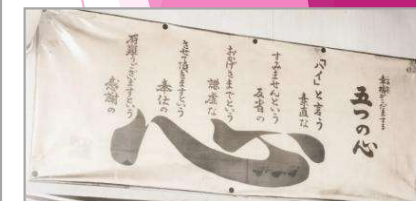 こだまする
五つの心
「ハイ」と言う
素直な
すみませんという
反省の
おかげさまでという
謙虚な
させて頂きますという
奉仕の
有難うございますという
感謝の
心